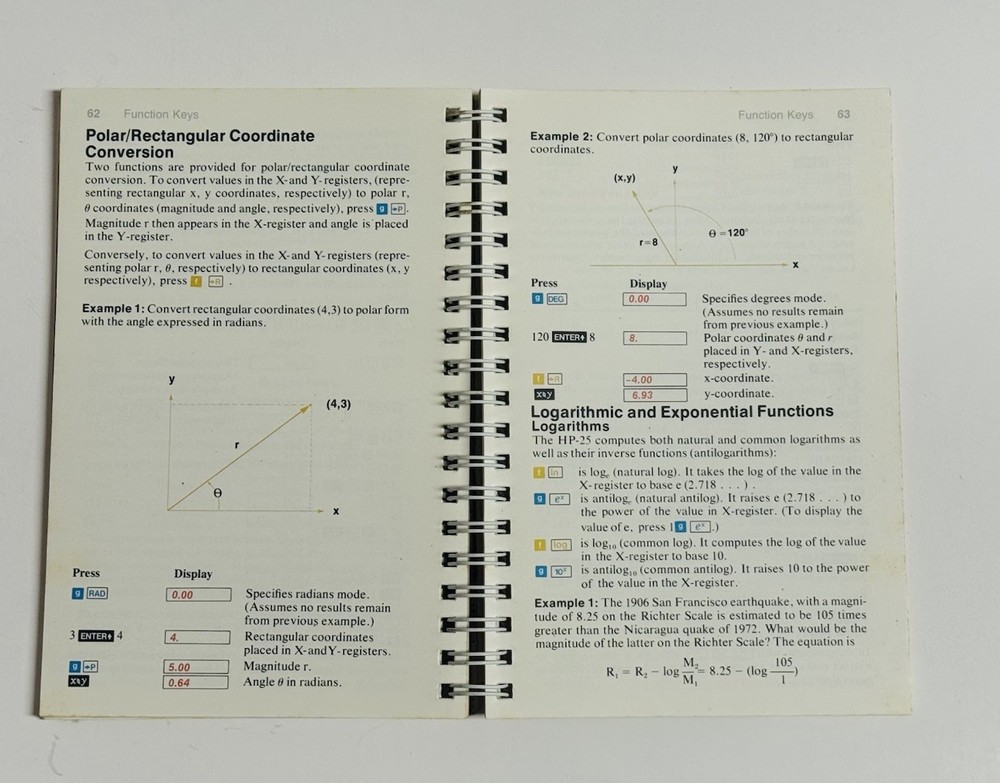 62 Function Keys
Polar/Rectangular Coordinate
Conversion
Two functions are provided for polar/rectangular coordinate
conversion. To convert values in the X- and Y-registers, (repre-
senting rectangular x, y coordinates, respectively) to polar r,
θ coordinates (magnitude and angle, respectively), press g →P.
Magnitude r then appears in the X-register and angle is placed
in the Y-register.
Conversely, to convert values in the X- and Y-registers (repre-
senting polar r, θ, respectively) to rectangular coordinates (x, y
respectively), press f →R .
Example 1: Convert rectangular coordinates (4,3) to polar form
with the angle expressed in radians.
y
(4,3)
r
θ
x
Press Display
g RAD 0.00 Specifies radians mode.
(Assumes no results remain
from previous example.)
3 ENTER↑ 4 4. Rectangular coordinates
placed in X- and Y-registers.
g →P 5.00 Magnitude r.
x⇄y 0.64 Angle θ in radians.
Function Keys 63
Example 2: Convert polar coordinates (8, 120°) to rectangular
coordinates.
y
(x,y)
θ = 120°
r=8
x
Press Display
g DEG 0.00 Specifies degrees mode.
(Assumes no results remain
from previous example.)
120 ENTER↑ 8 8. Polar coordinates θ and r
placed in Y- and X-registers,
respectively.
f →R −4.00 x-coordinate.
x⇄y 6.93 y-coordinate.
Logarithmic and Exponential Functions
Logarithms
The HP-25 computes both natural and common logarithms as
well as their inverse functions (antilogarithms):
f ln is logₑ (natural log). It takes the log of the value in the
X-register to base e (2.718 . . . ) .
g eˣ is antilogₑ (natural antilog). It raises e (2.718 . . . ) to
the power of the value in X-register. (To display the
value of e, press 1 g eˣ .)
f log is log₁₀ (common log). It computes the log of the value
in the X-register to base 10.
g 10ˣ is antilog₁₀ (common antilog). It raises 10 to the power
of the value in the X-register.
Example 1: The 1906 San Francisco earthquake, with a magni-
tude of 8.25 on the Richter Scale is estimated to be 105 times
greater than the Nicaragua quake of 1972. What would be the
magnitude of the latter on the Richter Scale? The equation is
R₁ = R₂ − log M₂/M₁ = 8.25 − (log 105/1)